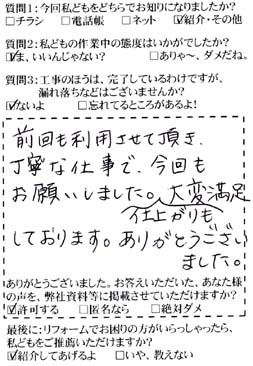 質問1:今回私どもをどちらでお知りになりましたか?
□チラシ □電話帳 □ネット ☑紹介・その他
質問2:私どもの作業中の態度はいかがでしたか?
☑ま、いいんじゃない? □ありゃ〜、ダメだね。
質問3:工事のほうは、完了しているわけですが、
漏れ落ちなどはございませんか?
☑ないよ □忘れてるところがあるよ!
前回も利用させて頂き、
丁寧な仕事で、今回も
お願いしました。大変満足
仕上がりも
しております。ありがとうござい
ました。
ありがとうございました。お答えいただいた、あなた様
の声を、弊社資料等に掲載させていただけますか?
☑許可する □匿名なら □絶対ダメ
最後に:リフォームでお困りの方がいらっしゃったら、
私どもをご推薦いただけますか?
☑紹介してあげるよ □いや、教えない